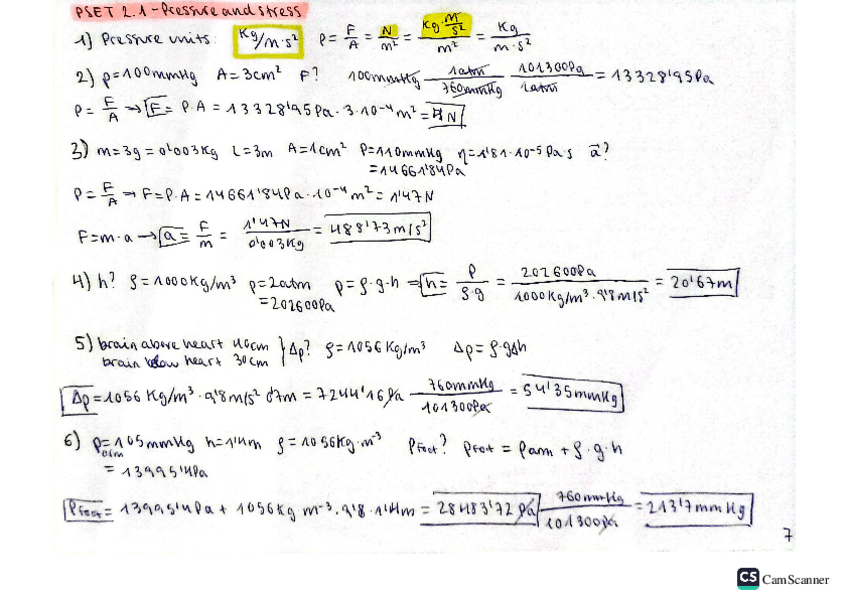 PSET 2.1 - Pressure and stress
1) Pressure units: Kg/m·s² p = F/A = N/m² = kg·m/s² / m² = Kg/m·s²
2) p=100mmHg A=3cm² F? 100mmHg 1atm/760mmHg 101300Pa/1atm = 13328'95Pa
p = F/A → F = P·A = 13328'95Pa · 3·10⁻⁴m² = 4N
3) m=3g=0'003Kg L=3m A=1cm² P=110mmHg η=1'81·10⁻⁵Pa·s a⃗?
=14661'84Pa
p = F/A → F=P·A=14661'84Pa·10⁻⁴m²=1'47N
F=m·a → a = F/m = 1'47N/0'003Kg = 488'73m/s²
4) h? ρ=1000Kg/m³ p=2atm p=ρ·g·h → h = p/ρ·g = 202600Pa/1000Kg/m³·9'8m/s² = 20'67m
=202600Pa
5) brain above heart 40cm } Δp? ρ=1056Kg/m³ Δp=ρ·gΔh
brain below heart 30cm
Δp=1056 Kg/m³·9'8m/s² 0'7m=7244'16Pa 760mmHg/101300Pa = 54'35mmHg
6) p=105mmHg h=1'4m ρ=1056Kg·m⁻³ Pfoot? Pfoot = Patm + ρ·g·h
= 13995'4Pa
Pfoot = 13995'4Pa + 1056Kg m⁻³·9'8·1'4m = 28483'72 Pa 760mmHg/101300Pa = 213'7mmHg
7
CS CamScanner